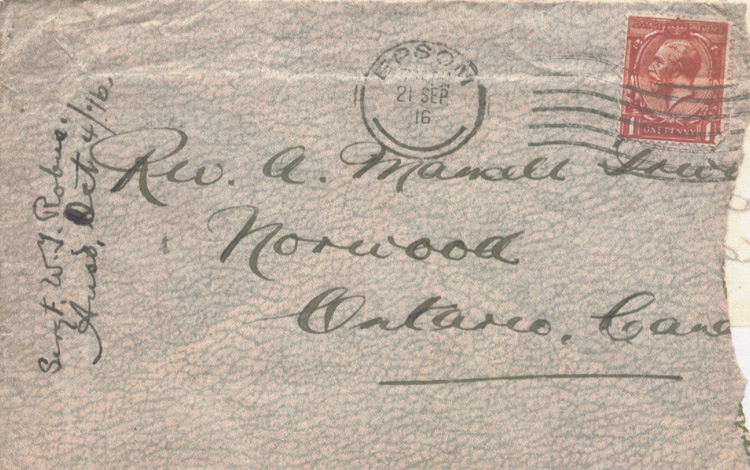 EPSOM
21 SEP
16
ONE PENNY
Rev. A. Mansell
Norwood
Ontario, Cana
Sergt. W. J. Robus.
Ansd. Oct. 4/16.